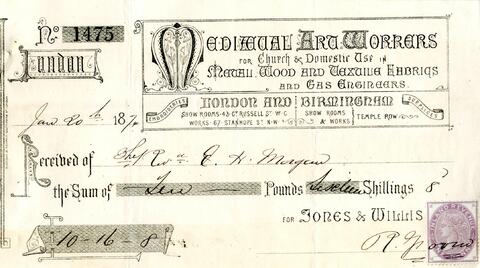 No 1475
London
MEDIÆVAL ART WORKERS
FOR Church & Domestic Use IN
METAL, WOOD AND TEXTILE FABRICS
AND GAS ENGINEERS.
LONDON AND BIRMINGHAM
SHOW ROOMS·43 Gt RUSSELL ST W·C
WORKS·67·STANHOPE ST·N·W·
SHOW ROOMS
& WORKS
TEMPLE ROW
Jan 20th 187
Received of The Revd E. H. Morgan
the Sum of Ten Pounds Sixteen Shillings 8
FOR JONES & WILLIS
10-16-8